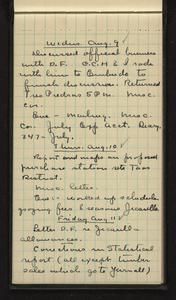 Wednes. Aug. 9
Discussed official business
with D.F. O.C.H & I rode
with him to Servilleta to
finish discussion. Returned
Tres Piedras 5 P.M. Misc.
Cor.
Eve - Misc.
Cor. July Exp Acct. Diary.
July.
Thurs. Aug. 10
Report and maps on proposed
purchase stations Taos
District.
Misc. Letters.
Eve - worked up schedule
grazing fees & seasons Jicarilla
Friday Aug 11
Letter D.F. re Jicarilla
allowances.
Corrections in Statistical
report (all except timber
sales which go to Yarnall)